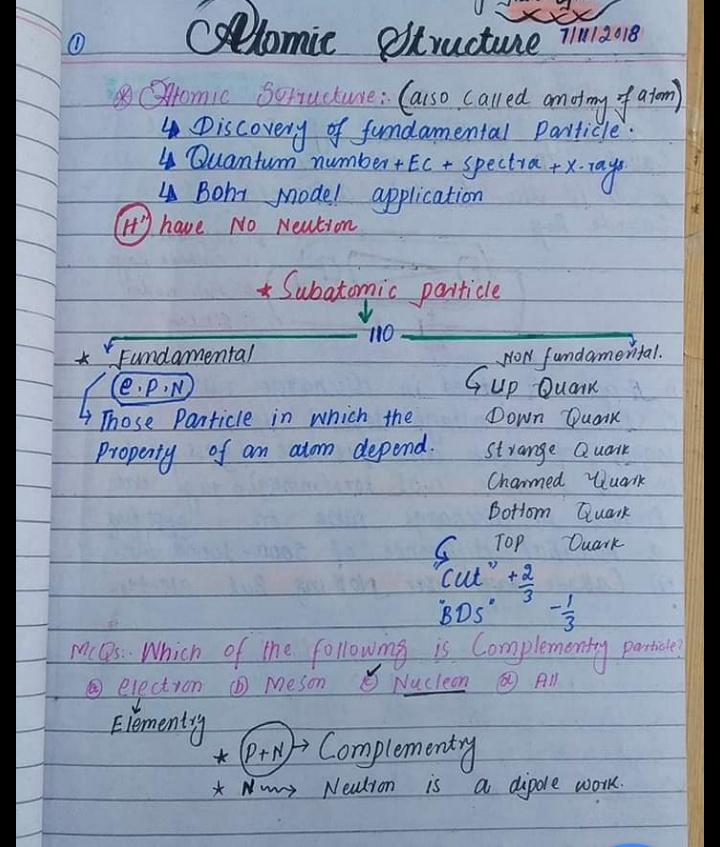 ①
Atomic Structure 7/11/2018
* Atomic Structure:. (also called anotmy of atom)
↳ Discovery of fundamental Particle.
↳ Quantum number + EC + spectra + x-rays
↳ Bohr Model application
(H") have No Neutron
* Subatomic particle
110
* Fundamental
NON fundamental.
(e.P.N)
UP Quark
↳ Those Particle in which the
Down Quark
Property of an atom depend.
Strange Quark
Charmed Quark
Bottom Quark
TOP Quark
"Cut" +2/3
"BDs" -1/3
McQs:. Which of the following is Complementry particle?
ⓐ electron ⓑ Meson ⓒ Nucleon ⓓ All
Elementry
* (P+N) → Complementry
* N → Neutron is a dipole work.